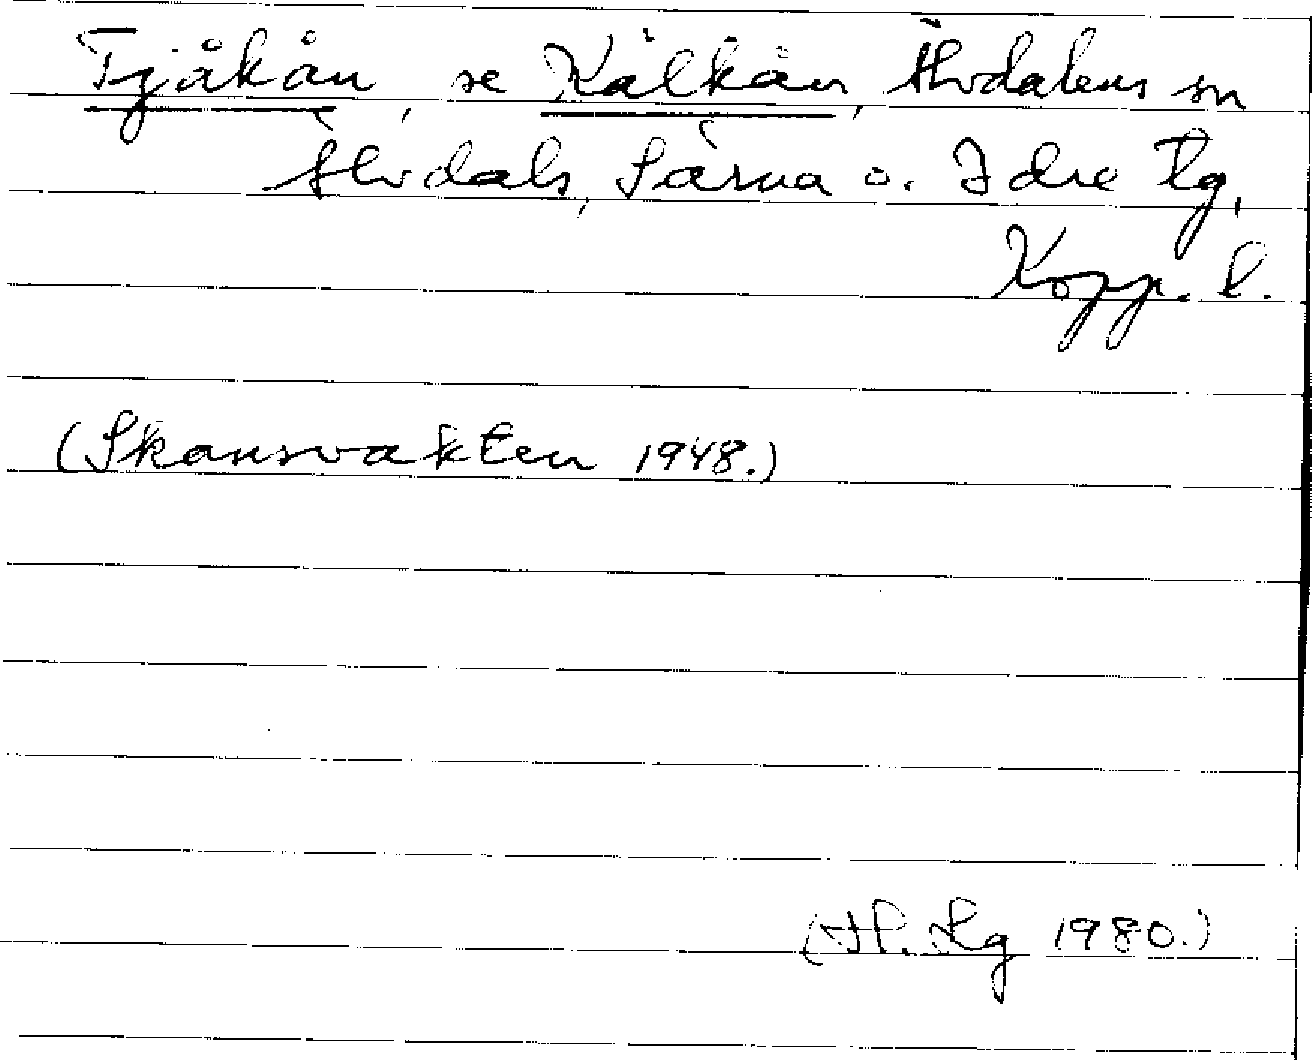 Tjåkån, se Kälkån, Älvdalens sn
Älvdals, Särna o. Idre tg,
Kopp. l.
(Skansvakten 1948.)
1980.)